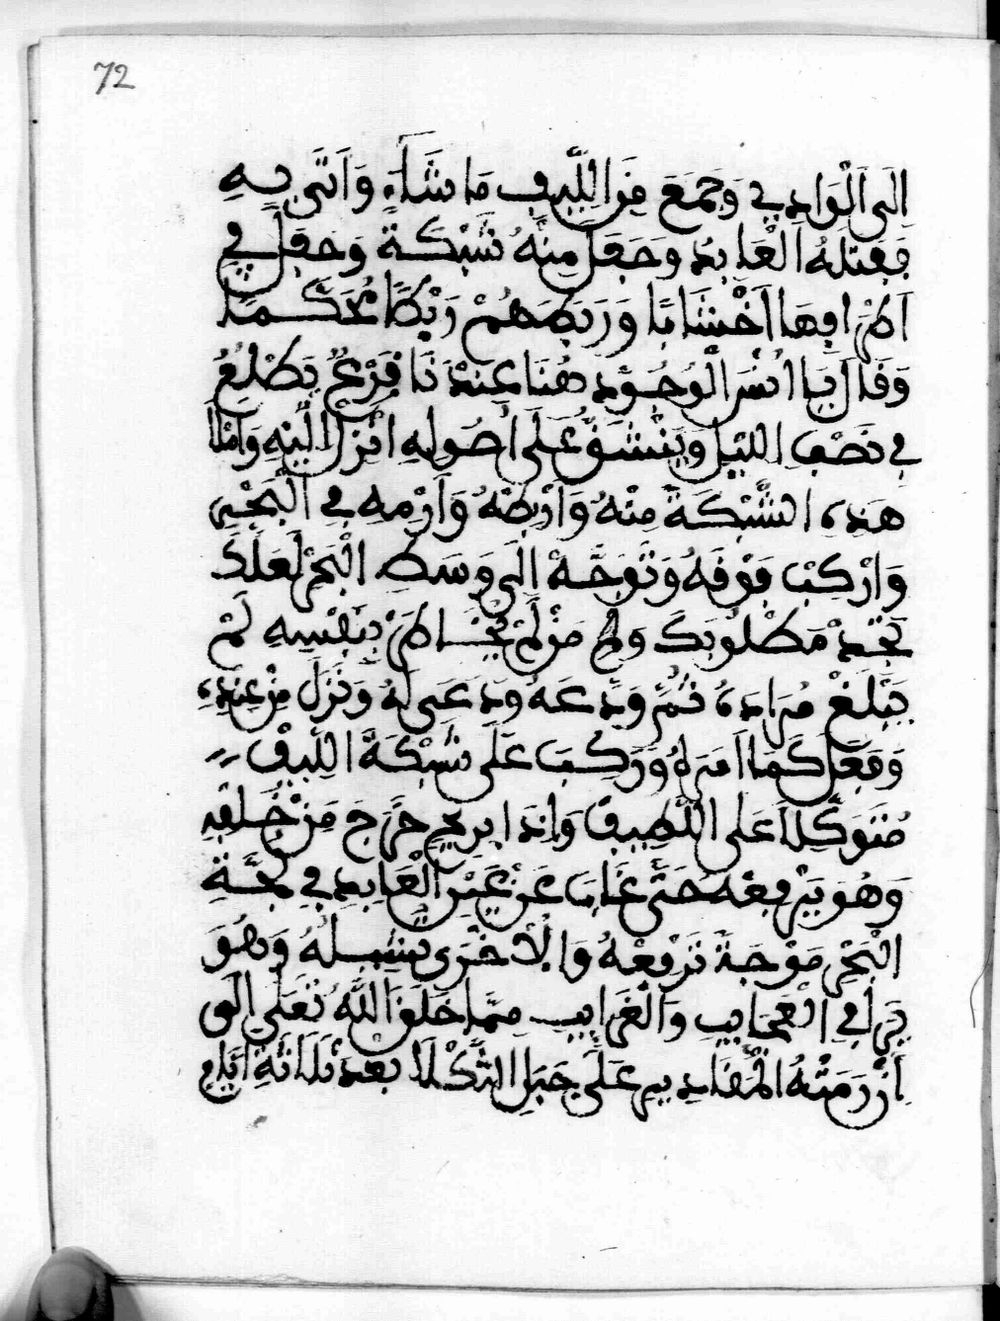 72
الَى الْوَادِي وَجَمَعَ مِنَ اللِّيفِ مَا شَاءَ وَاَتَى بِهِ
فَفَتَلَهُ الْعَابِدُ وَجَعَلَ مِنْهُ شَبْكَةً وَجَعَلَ فِي
اَطْرَافِهَا اَخْشَابًا وَرَبَطَهُمْ رَبْطًا مُحْكَمًا
وَقَالَ يَا اُنْسَ الْوُجُودِ هُنَا عِنْدَنَا قَرْعٌ يَطْلُعُ
فِي نَصْفِ اللَّيْلِ وَيَنْشَقُّ عَلَى اُصُولِهِ اَنْزِلْ اِلَيْهِ وَامْلَا
هَذِهِ الشَّبْكَةَ مِنْهُ وَارْبِطْهُ وَارْمِهِ فِي الْبَحْرِ
وَارْكَبْ فَوْقَهُ وَتَوَجَّهْ الَى وَسَطِ الْبَحْرِ لَعَلَّكَ
تَجِدْ مَطْلُوبَكَ وَلَا مَنْ لَمْ يُخَاطِرْ بِنَفْسِهِ لَمْ
يَبْلُغْ مُرَادِهِ ثُمَّ وَدَعَهُ وَدَعَى لَهُ وَنَزَلَ مِنْ عِنْدِهِ
وَفَعَلَ كَمَا اَمَرَهُ وَرَكِبَ عَلَى شَبْكَةَ اللِّيفِ
مُتَوَكِّلًا عَلَى اللَّطِيفِ وَاِذَا بِرِيحٍ خَرَجَ مِنْ خَلْفِهِ
وَهُوَ يَرْفِعُهُ حَتَّى غَابَ عَنْ عَيْنِ الْعَابِدِ فِي لُجَّةِ
الْبَحْرِ مَوْجَةً تَرْفِعُهُ وَالْاُخْرَى تَشِيلُهُ وَهُوَ
يَرَا فِي الْعَجَايِبِ وَالْغَرَايِبِ مِمَّا خَلَقَ اللَّهُ تَعَلَى الَى
اَنْ رَمَتْهُ الْمَقَادِيرِ عَلَى جَبَلِ الثَّكْلَا بَعْدَ ثَلَاثَةِ اَيَّامٍ